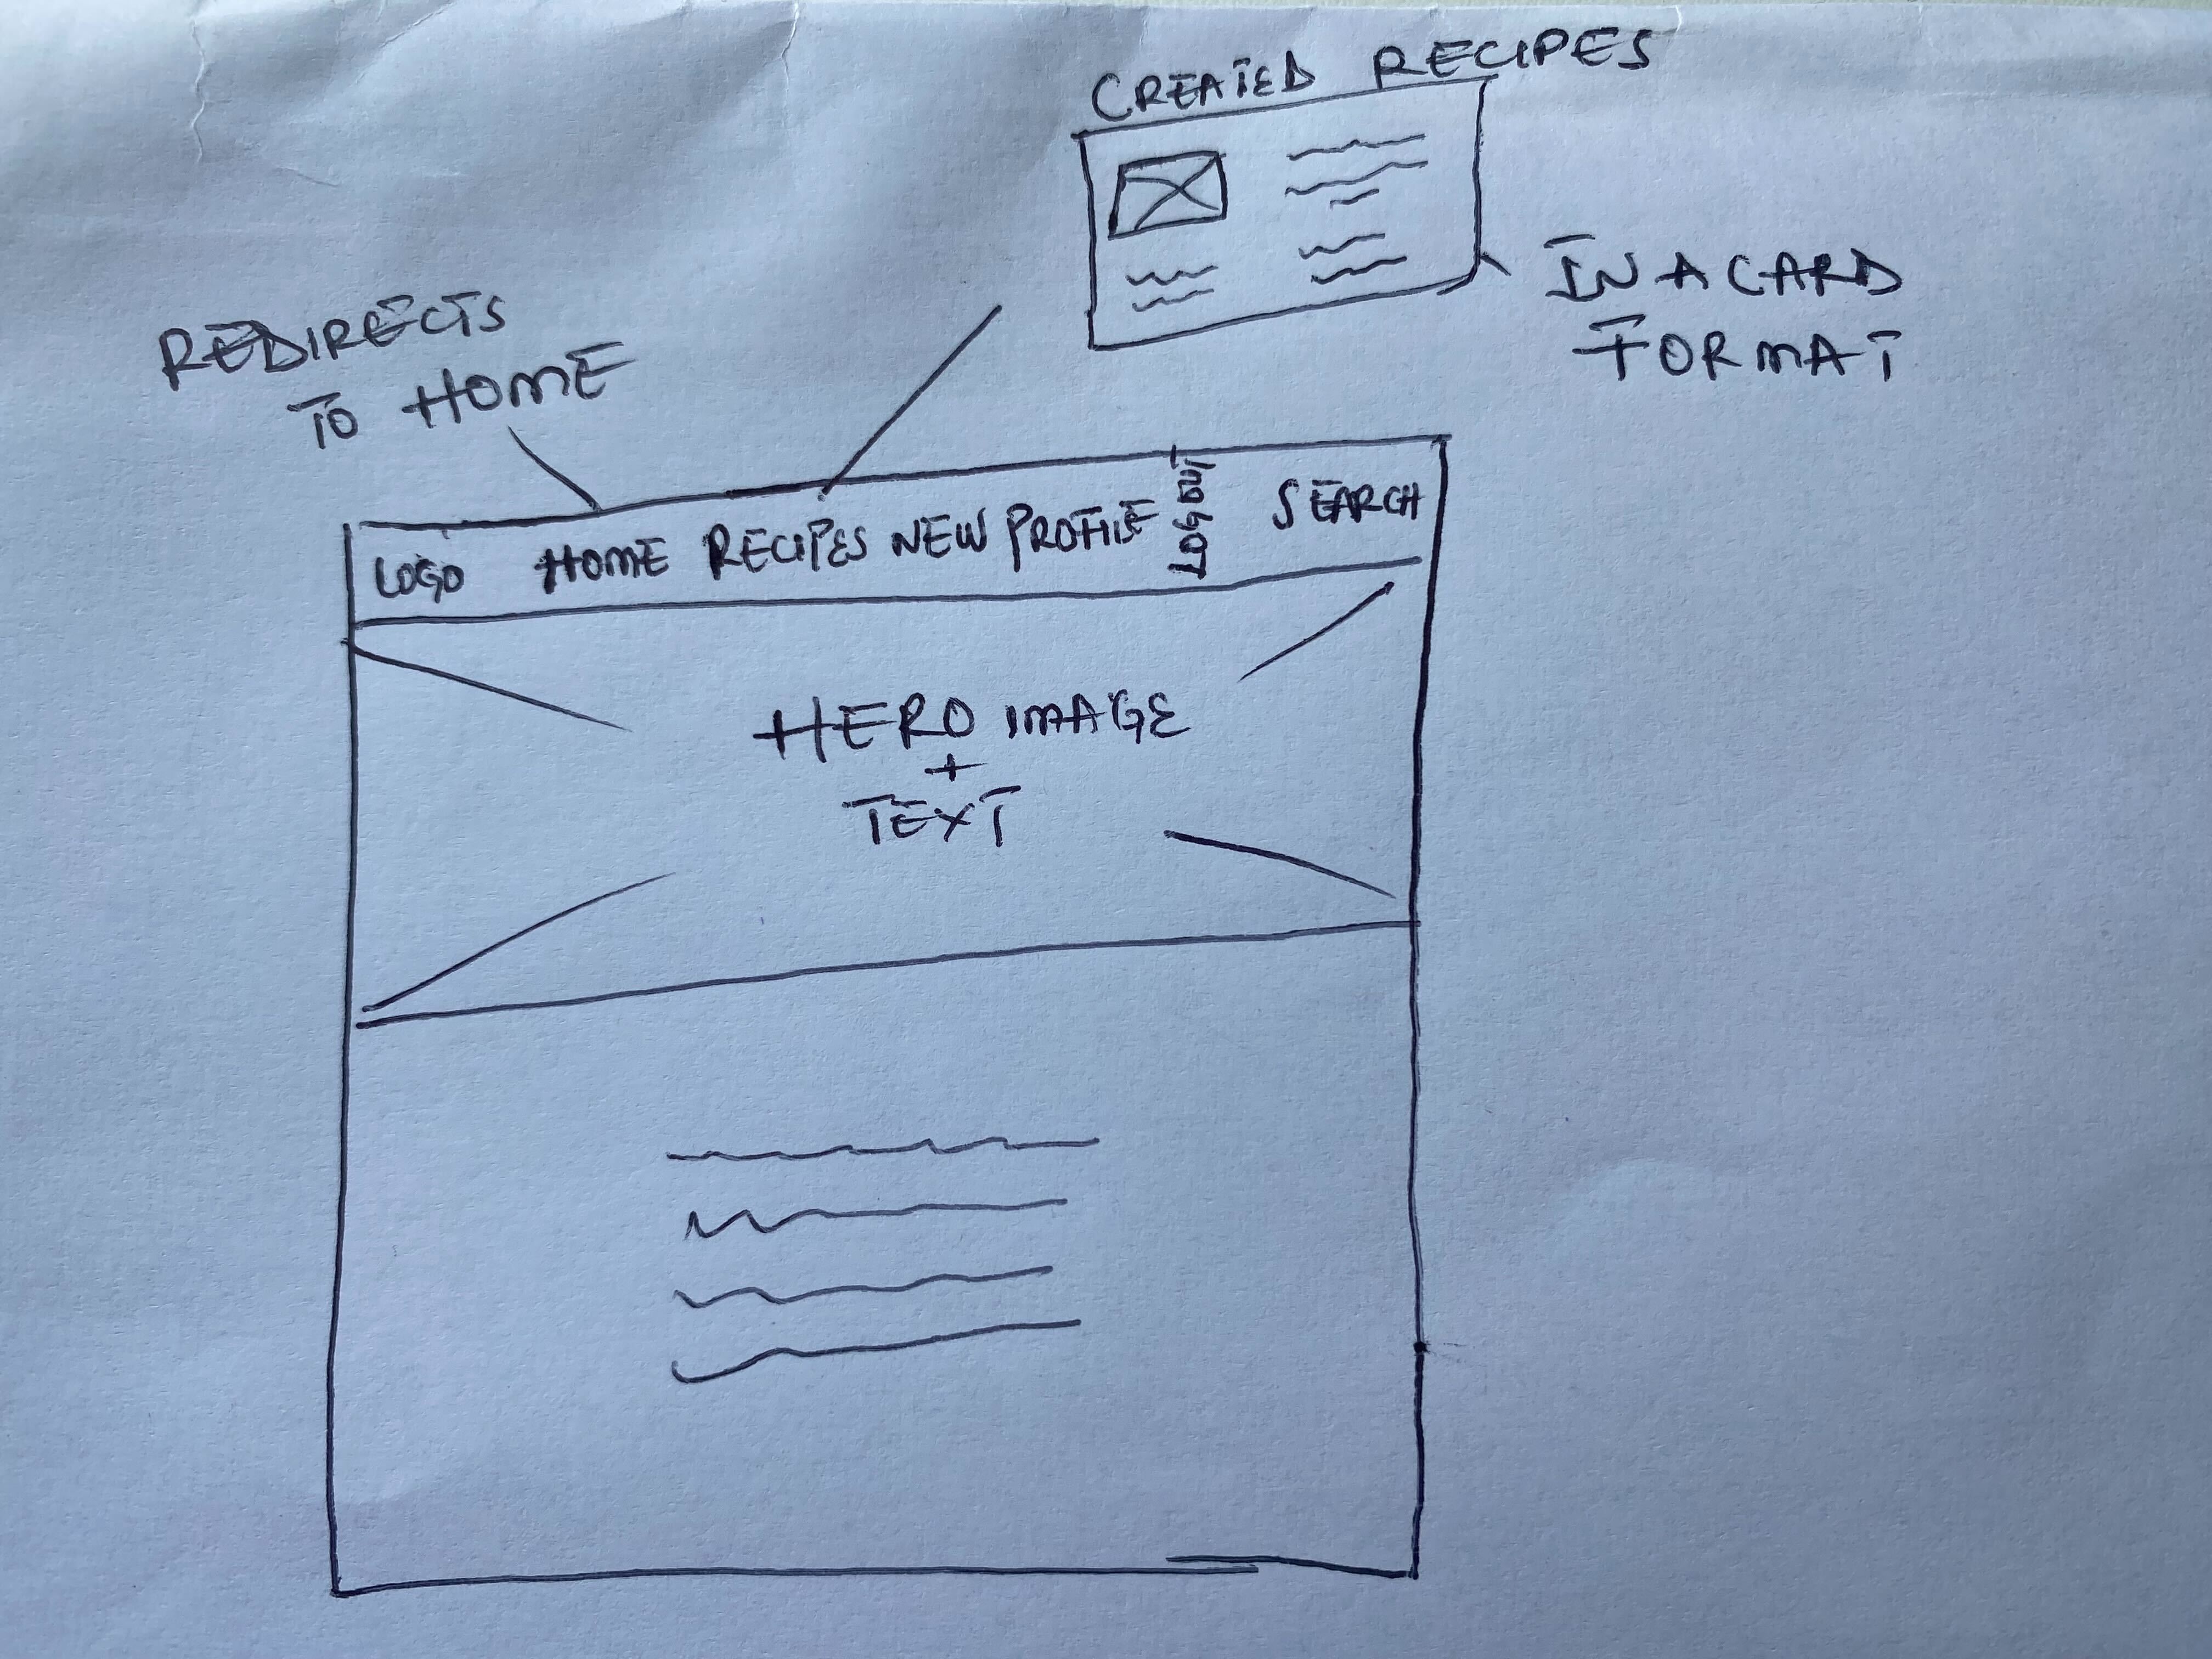 CREATED RECIPES
IN A CARD
FORMAT
REDIRECTS
TO HOME
LOGO HOME RECIPES NEW PROFILE LOG OUT SEARCH
HERO IMAGE
+
TEXT